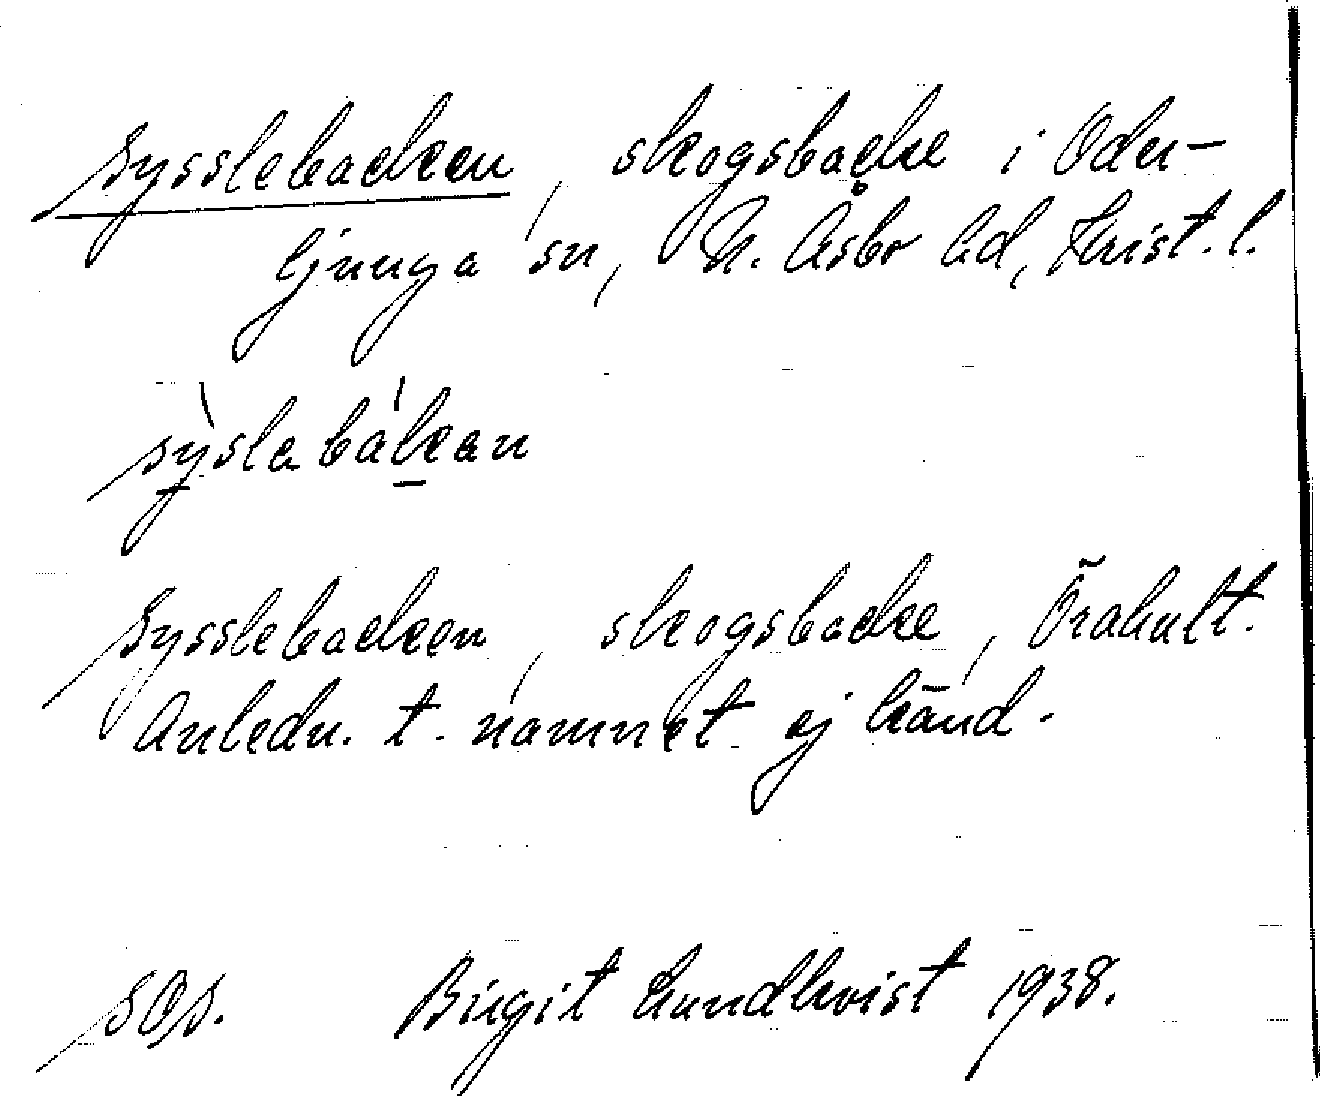 Sysslebacken, skogsbacke i Oder-
ljunga sn, N. Åsbo hd, Krist. l.
sỳslabákan
Sysslebacken, skogsbacke, Örahult.
Anledn. t. namnet ej känd.
SOS. Birgit Lundkvist 1938.